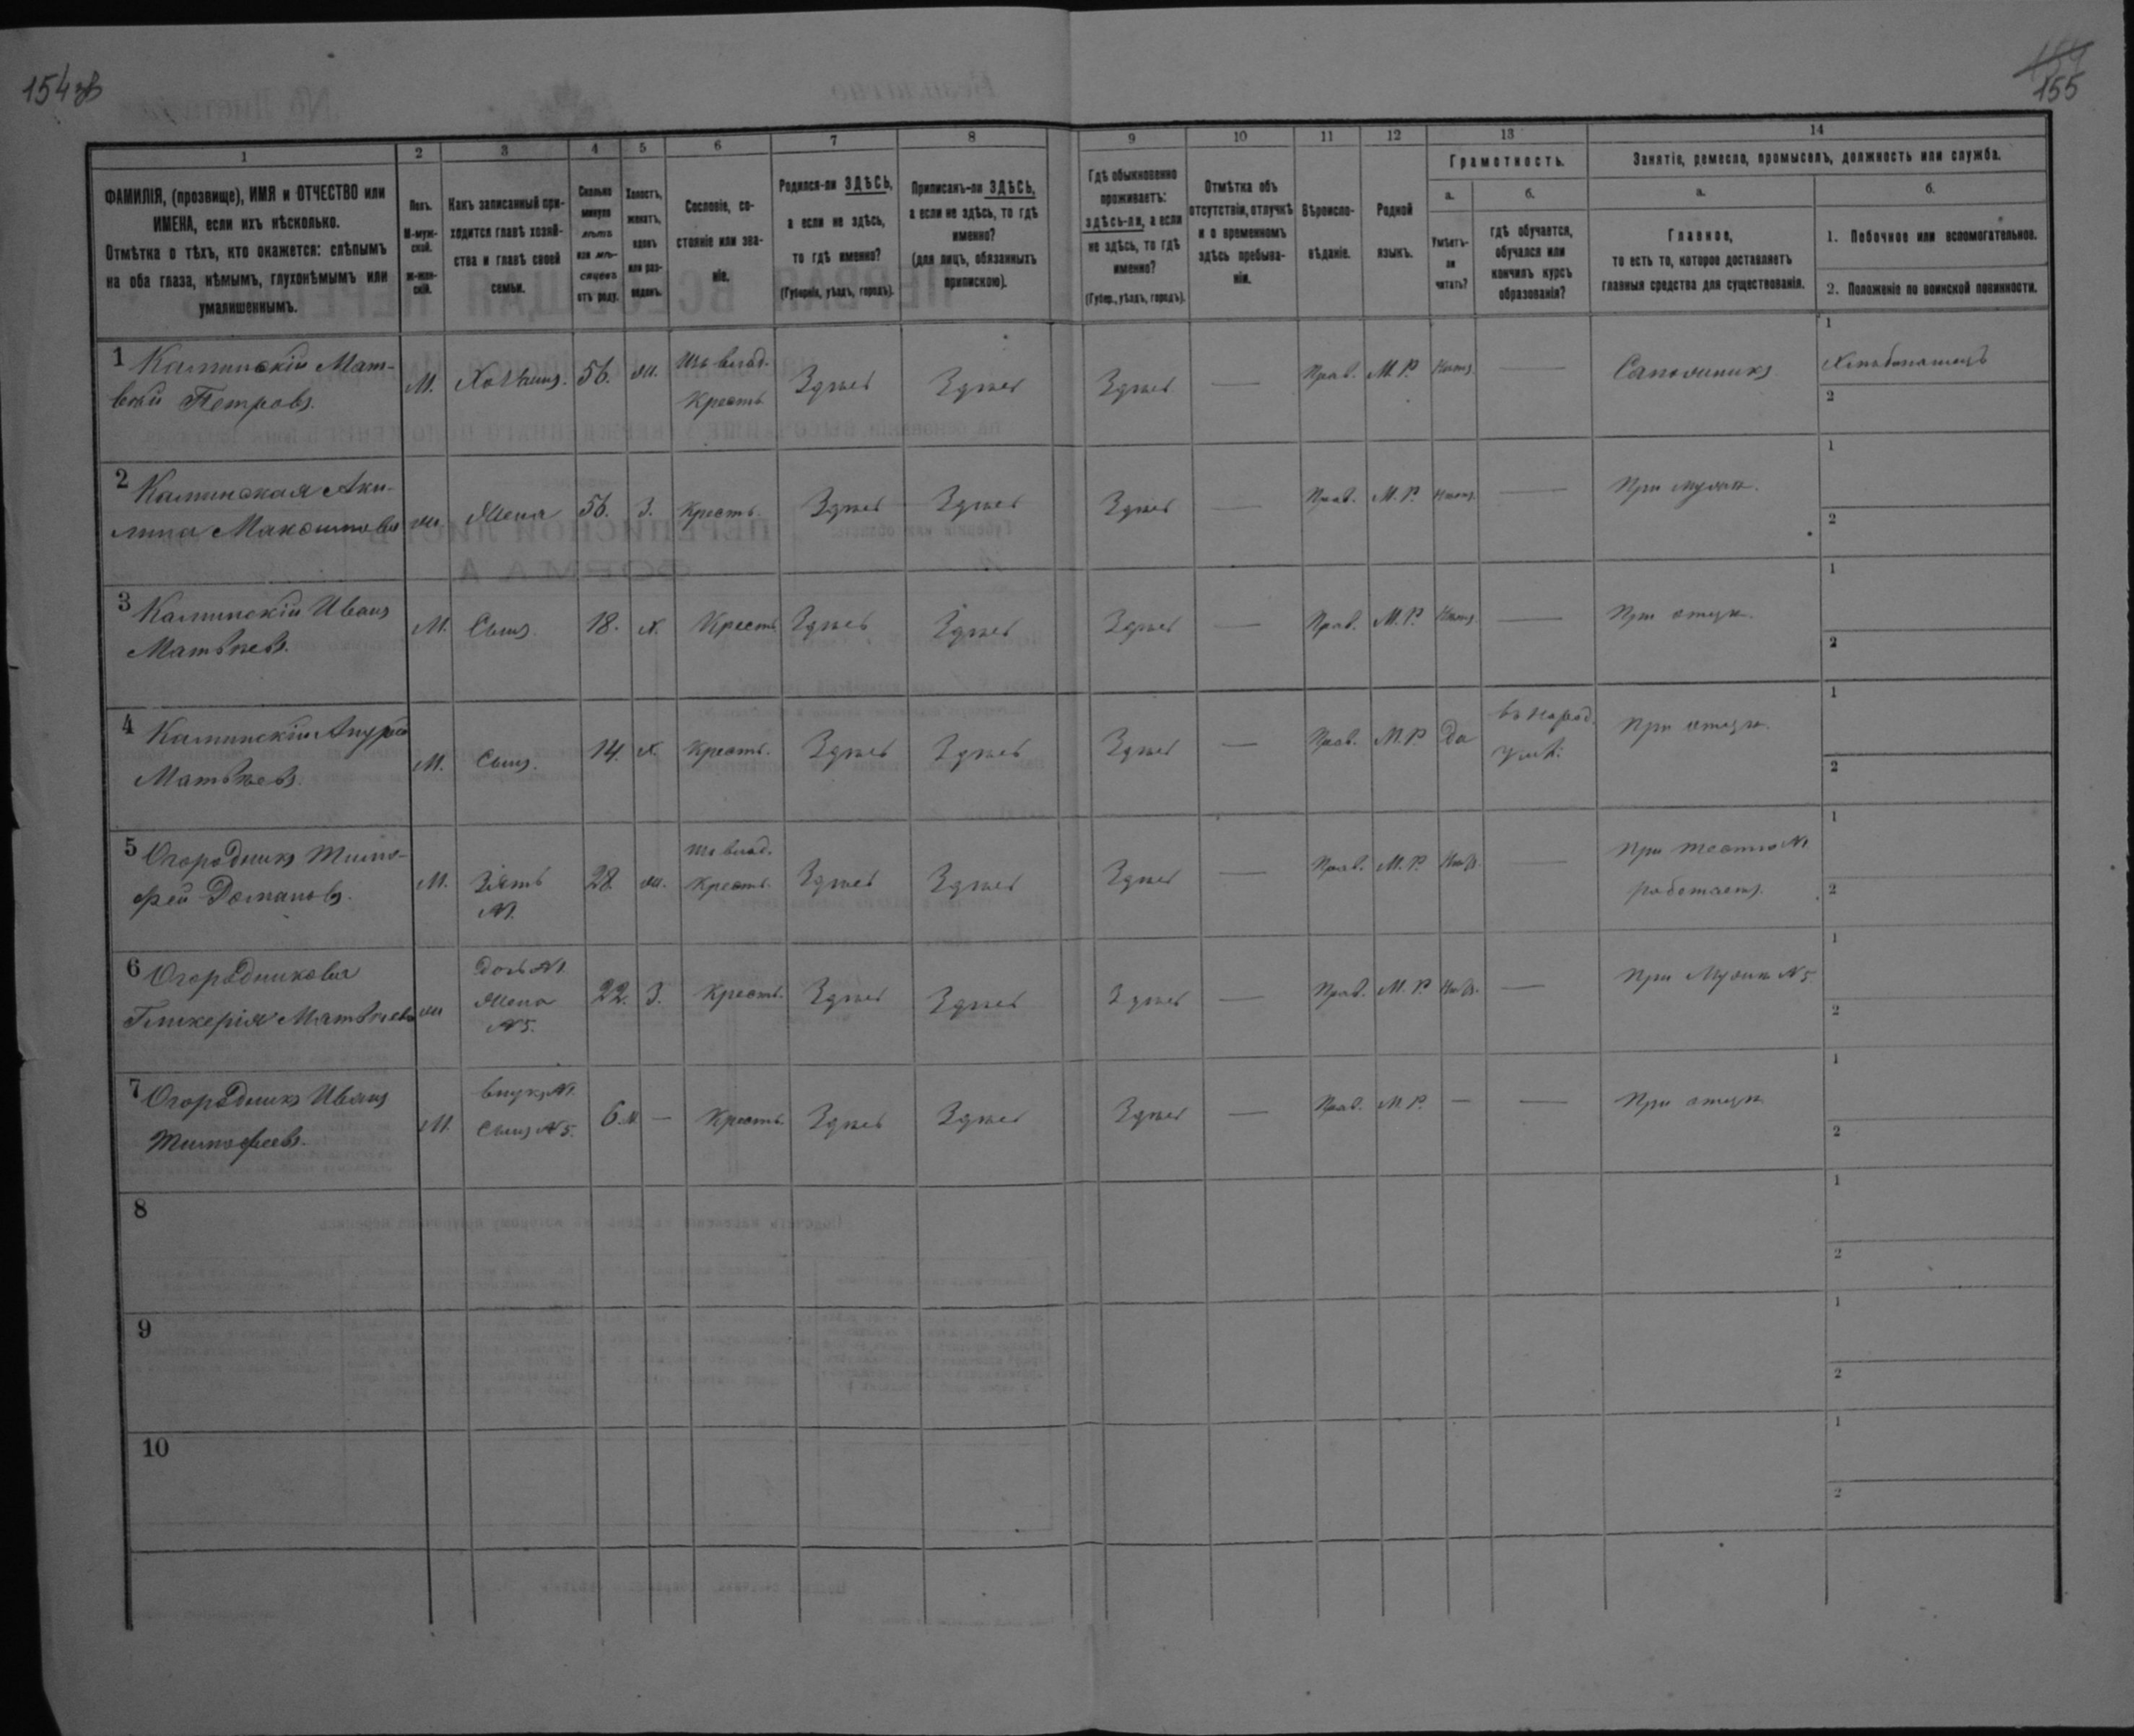 154 об
154
155
1
2
3
4
5
6
7
8
9
10
11
12
13
14
ФАМИЛІЯ, (прозвище), ИМЯ и ОТЧЕСТВО или
ИМЕНА, если ихъ нѣсколько.
Отмѣтка о тѣхъ, кто окажется: слѣпымъ
на оба глаза, нѣмымъ, глухонѣмымъ или
умалишеннымъ.
Полъ.
М-муж-
ской.
Ж-жен-
скій.
Какъ записанный при-
ходится главѣ хозяй-
ства и главѣ своей
семьи.
Сколько
минуло
лѣтъ
или мѣ-
сяцевъ
отъ роду.
Холостъ,
женатъ,
вдовъ
или раз-
веденъ.
Сословіе, со-
стояніе или зва-
ніе.
Родился-ли ЗДѢСЬ,
а если не здѣсь,
то гдѣ именно?
(Губернія, уѣздъ, городъ).
Приписанъ-ли ЗДѢСЬ,
а если не здѣсь, то гдѣ
именно?
(для лицъ, обязанныхъ
припискою).
Гдѣ обыкновенно
проживаетъ:
здѣсь-ли, а если
не здѣсь, то гдѣ
именно?
(Губер., уѣздъ, городъ).
Отмѣтка объ
отсутствіи, отлучкѣ
и о временномъ
здѣсь пребыва-
ніи.
Вѣроиспо-
вѣданіе.
Родной
языкъ.
Грамотность.
а.
Умѣетъ-
ли
читать?
б.
гдѣ обучается,
обучался или
кончилъ курсъ
образованія?
Занятіе, ремесло, промыселъ, должность или служба.
а.
Главное,
то есть то, которое доставляетъ
главныя средства для существованія.
б.
1. Побочное или вспомогательное.
2. Положеніе по воинской повинности.
1 Калинскій Мат-
вѣй Петровъ.
М. Хозяинъ. 56. ж. Изъ влад.
Крестъ. Здѣсь Здѣсь Здѣсь — Прав. М.Р. Нѣтъ — Сапожникъ Хлѣбопашецъ
1
2
2 Калинская Аки-
лина Максимова
ж Жена 56. З. Крестъ. Здѣсь Здѣсь Здѣсь — Прав. М.Р. Нѣтъ — При мужѣ.
1
2
3 Калинскій Иванъ
Матвѣевъ.
М. Сынъ. 18. х. Крестъ. Здѣсь Здѣсь Здѣсь — Прав. М.Р. Нѣтъ — При отцѣ.
1
2
4 Калинскій
Матвѣевъ.
М. Сынъ. 14. х. Крестъ. Здѣсь Здѣсь Здѣсь — Прав. М.Р. Да въ народ.
учил. При отцѣ.
1
2
5 Огородникъ Тимо-
фей
М. Зять
№1. 28. ж. Изъ влад.
Крестъ. Здѣсь Здѣсь Здѣсь — Прав. М.Р. Нѣтъ. — При тестѣ №1
работаетъ.
1
2
6 Огородникова
Гликерія Матвѣева
ж Дочь №1
Жена
№5. 22. З. Крестъ. Здѣсь Здѣсь Здѣсь — Прав. М.Р. Нѣтъ. — При Мужѣ №5
1
2
7 Огородникъ Иванъ
Тимофеевъ.
М. Внукъ №1.
Сынъ №5. 6.м — Крестъ. Здѣсь Здѣсь Здѣсь — Прав. М.Р. — — При отцѣ
1
2
8
1
2
9
1
2
10
1
2